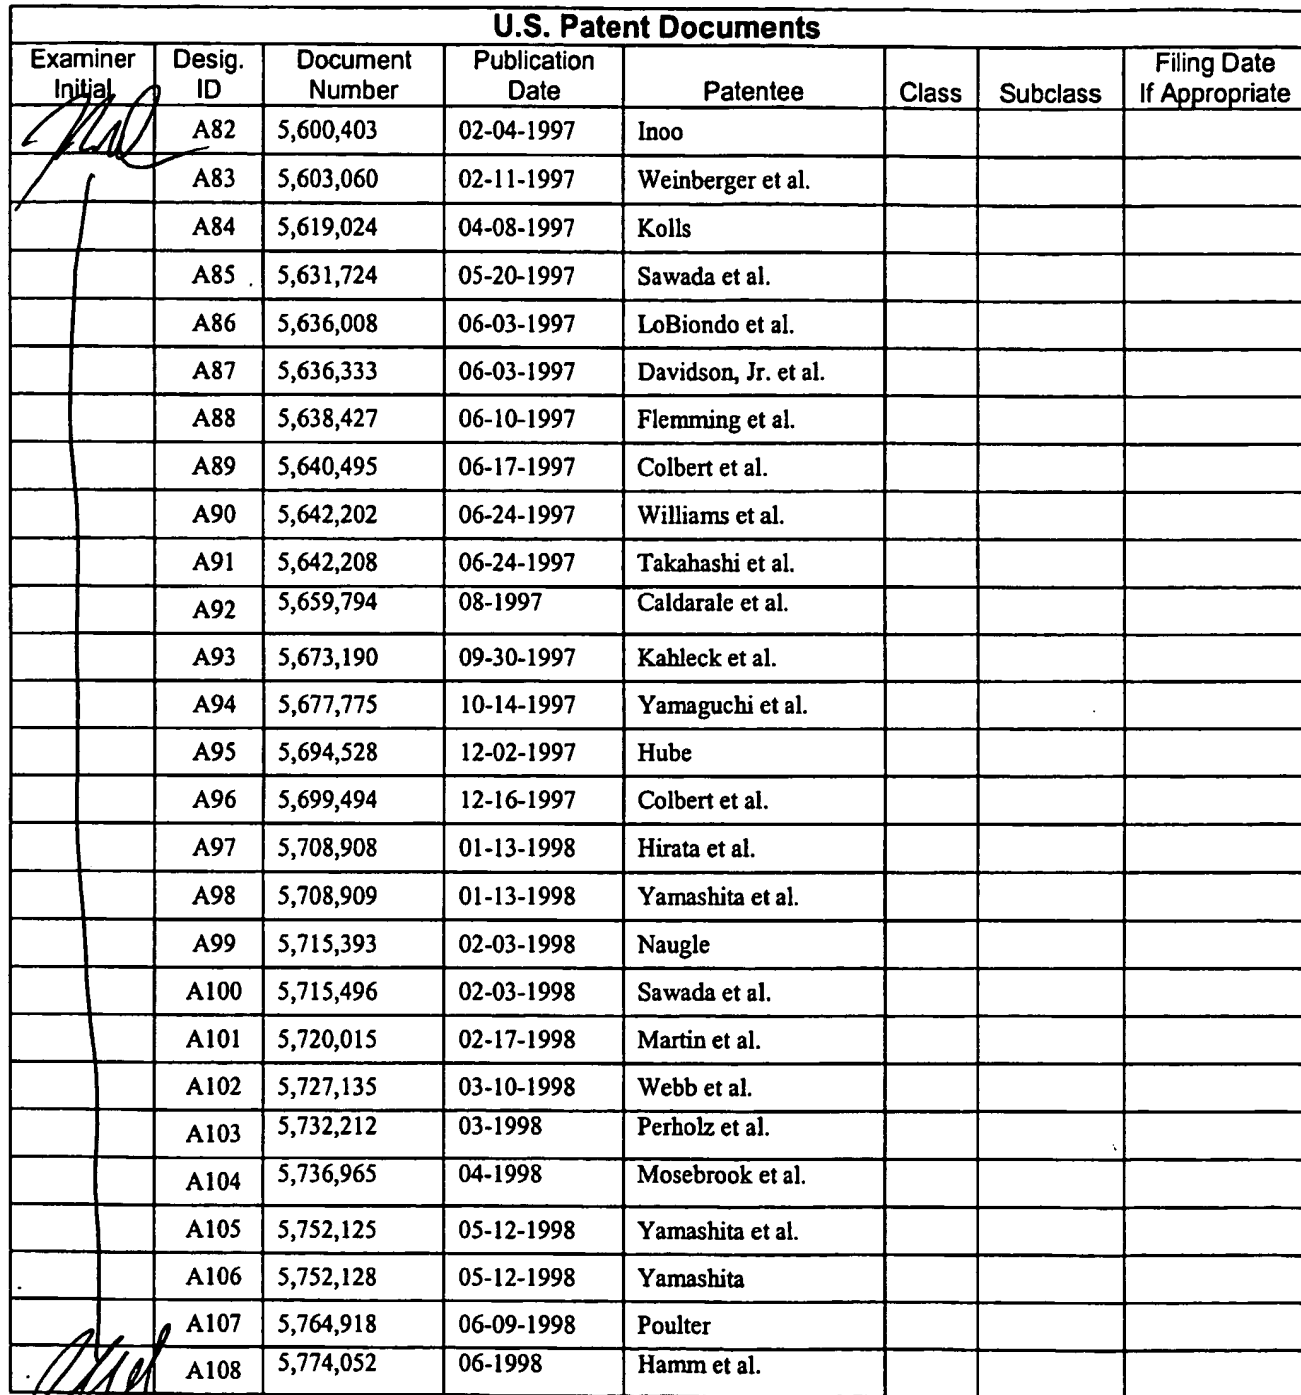 U.S. Patent Documents
Examiner Initial Desig. ID Document Number Publication Date Patentee Class Subclass Filing Date If Appropriate
A82 5,600,403 02-04-1997 Inoo
A83 5,603,060 02-11-1997 Weinberger et al.
A84 5,619,024 04-08-1997 Kolls
A85 5,631,724 05-20-1997 Sawada et al.
A86 5,636,008 06-03-1997 LoBiondo et al.
A87 5,636,333 06-03-1997 Davidson, Jr. et al.
A88 5,638,427 06-10-1997 Flemming et al.
A89 5,640,495 06-17-1997 Colbert et al.
A90 5,642,202 06-24-1997 Williams et al.
A91 5,642,208 06-24-1997 Takahashi et al.
A92 5,659,794 08-1997 Caldarale et al.
A93 5,673,190 09-30-1997 Kahleck et al.
A94 5,677,775 10-14-1997 Yamaguchi et al.
A95 5,694,528 12-02-1997 Hube
A96 5,699,494 12-16-1997 Colbert et al.
A97 5,708,908 01-13-1998 Hirata et al.
A98 5,708,909 01-13-1998 Yamashita et al.
A99 5,715,393 02-03-1998 Naugle
A100 5,715,496 02-03-1998 Sawada et al.
A101 5,720,015 02-17-1998 Martin et al.
A102 5,727,135 03-10-1998 Webb et al.
A103 5,732,212 03-1998 Perholz et al.
A104 5,736,965 04-1998 Mosebrook et al.
A105 5,752,125 05-12-1998 Yamashita et al.
A106 5,752,128 05-12-1998 Yamashita
A107 5,764,918 06-09-1998 Poulter
A108 5,774,052 06-1998 Hamm et al.